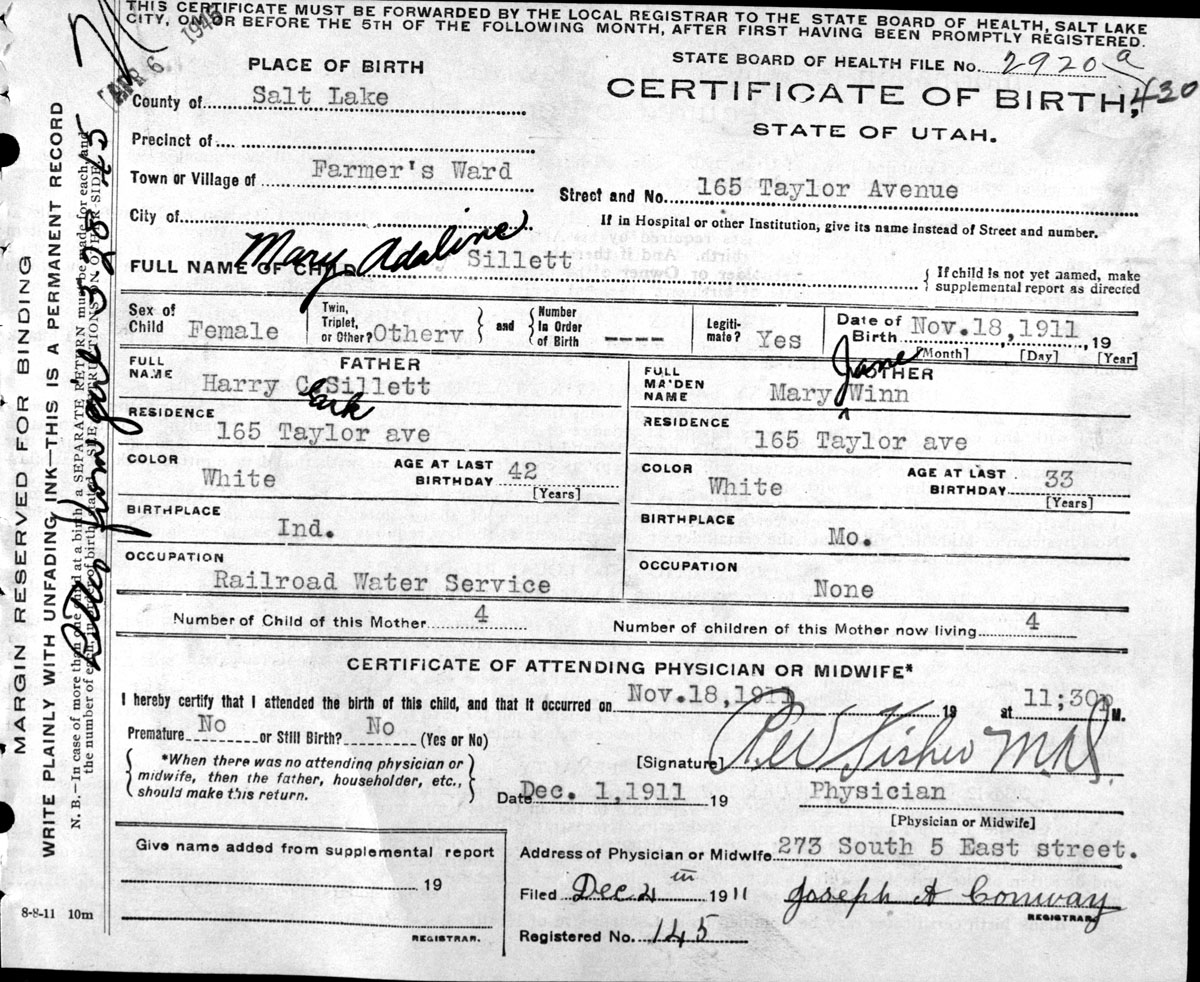 THIS CERTIFICATE MUST BE FORWARDED BY THE LOCAL REGISTRAR TO THE STATE BOARD OF HEALTH, SALT LAKE
CITY, ON OR BEFORE THE 5TH OF THE FOLLOWING MONTH, AFTER FIRST HAVING BEEN PROMPTLY REGISTERED.
APR 6, 1943
STATE BOARD OF HEALTH FILE No. 2920 a
420
PLACE OF BIRTH
CERTIFICATE OF BIRTH,
STATE OF UTAH.
County of Salt Lake
Precinct of
Town or Village of Farmer's Ward
Street and No. 165 Taylor Avenue
City of
If in Hospital or other Institution, give its name instead of Street and number.
FULL NAME OF CHILD Mary Adaline Sillett
{ If child is not yet named, make
supplemental report as directed
Sex of Child Female
Twin, Triplet, or Other? Otherv } and { Number In Order of Birth ----
Legiti-mate? Yes
Date of Birth Nov.18,1911, 19
[Month] [Day] [Year]
FATHER
FULL NAME Harry C Sillett
lark
RESIDENCE
165 Taylor ave
COLOR White AGE AT LAST BIRTHDAY 42
[Years]
BIRTHPLACE
Ind.
OCCUPATION
Railroad Water Service
MOTHER
FULL MAIDEN NAME Mary Jane Winn
RESIDENCE
165 Taylor ave
COLOR White AGE AT LAST BIRTHDAY 33
[Years]
BIRTHPLACE
Mo.
OCCUPATION
None
Number of Child of this Mother 4 Number of children of this Mother now living 4
CERTIFICATE OF ATTENDING PHYSICIAN OR MIDWIFE*
I hereby certify that I attended the birth of this child, and that it occurred on Nov.18,1911 19 at 11;30p M.
Premature No or Still Birth? No (Yes or No)
{ *When there was no attending physician or
midwife, then the father, householder, etc.,
should make this return. }
[Signature] Fisher M.D.
Date Dec. 1,1911 19 Physician
[Physician or Midwife]
Give name added from supplemental report
19
REGISTRAR.
Address of Physician or Midwife 273 South 5 East street.
Filed Dec 4 th 1911 Joseph A Conway
REGISTRAR
Registered No. 145
8-8-11 10m
MARGIN RESERVED FOR BINDING
WRITE PLAINLY WITH UNFADING INK—THIS IS A PERMANENT RECORD
N. B.—In case of more than one child at a birth, a SEPARATE RETURN must be made for each, and
the number of each, in order of birth, stated. SEE INSTRUCTIONS ON OTHER SIDE.
name give 3 25 43